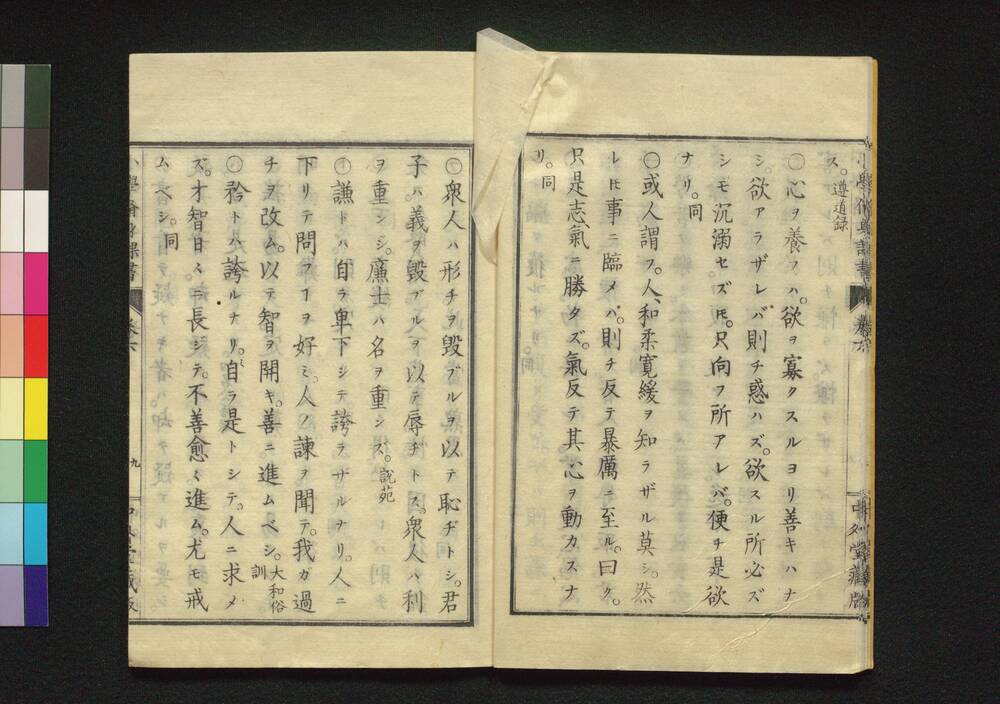 ス。遵道録
○心ヲ養フハ。欲ヲ寡クスルヨリ善キハナ
シ。欲アラザレバ則チ惑ハズ。欲スル所必ズ
シモ沉溺セズ𪜈。只向フ所アレバ。便チ是欲
ナリ。同
○或人謂フ。人、和柔寛緩ヲ知ラザル莫シ。然
レ𪜈事ニ臨メバ。則チ反テ暴厲ニ至ル。曰ク。
只是志氣ニ勝タズ。氣反テ其心ヲ動カスナ
リ。同
○衆人ハ形チヲ毀ブルヲ以テ恥ヂトシ。君
子ハ。義ヲ毀ブルヲ以テ辱ヂトス。衆人ハ利
ヲ重ンジ。廉士ハ名ヲ重ンズ。説苑
○謙トハ自ラ卑下シテ誇ラザルナリ。人ニ
下リテ問フヿヲ好ミ。人ノ諫ヲ聞テ。我ガ過
チヲ改ム。以テ智ヲ開キ。善ニ進ムベシ。大和俗訓
○矜トハ誇ルナリ。自ラ是トシテ。人ニ求メ
ズ。才智日々ニ長ジテ。不善愈々進ム。尤モ戒
ム〻シ。同
九